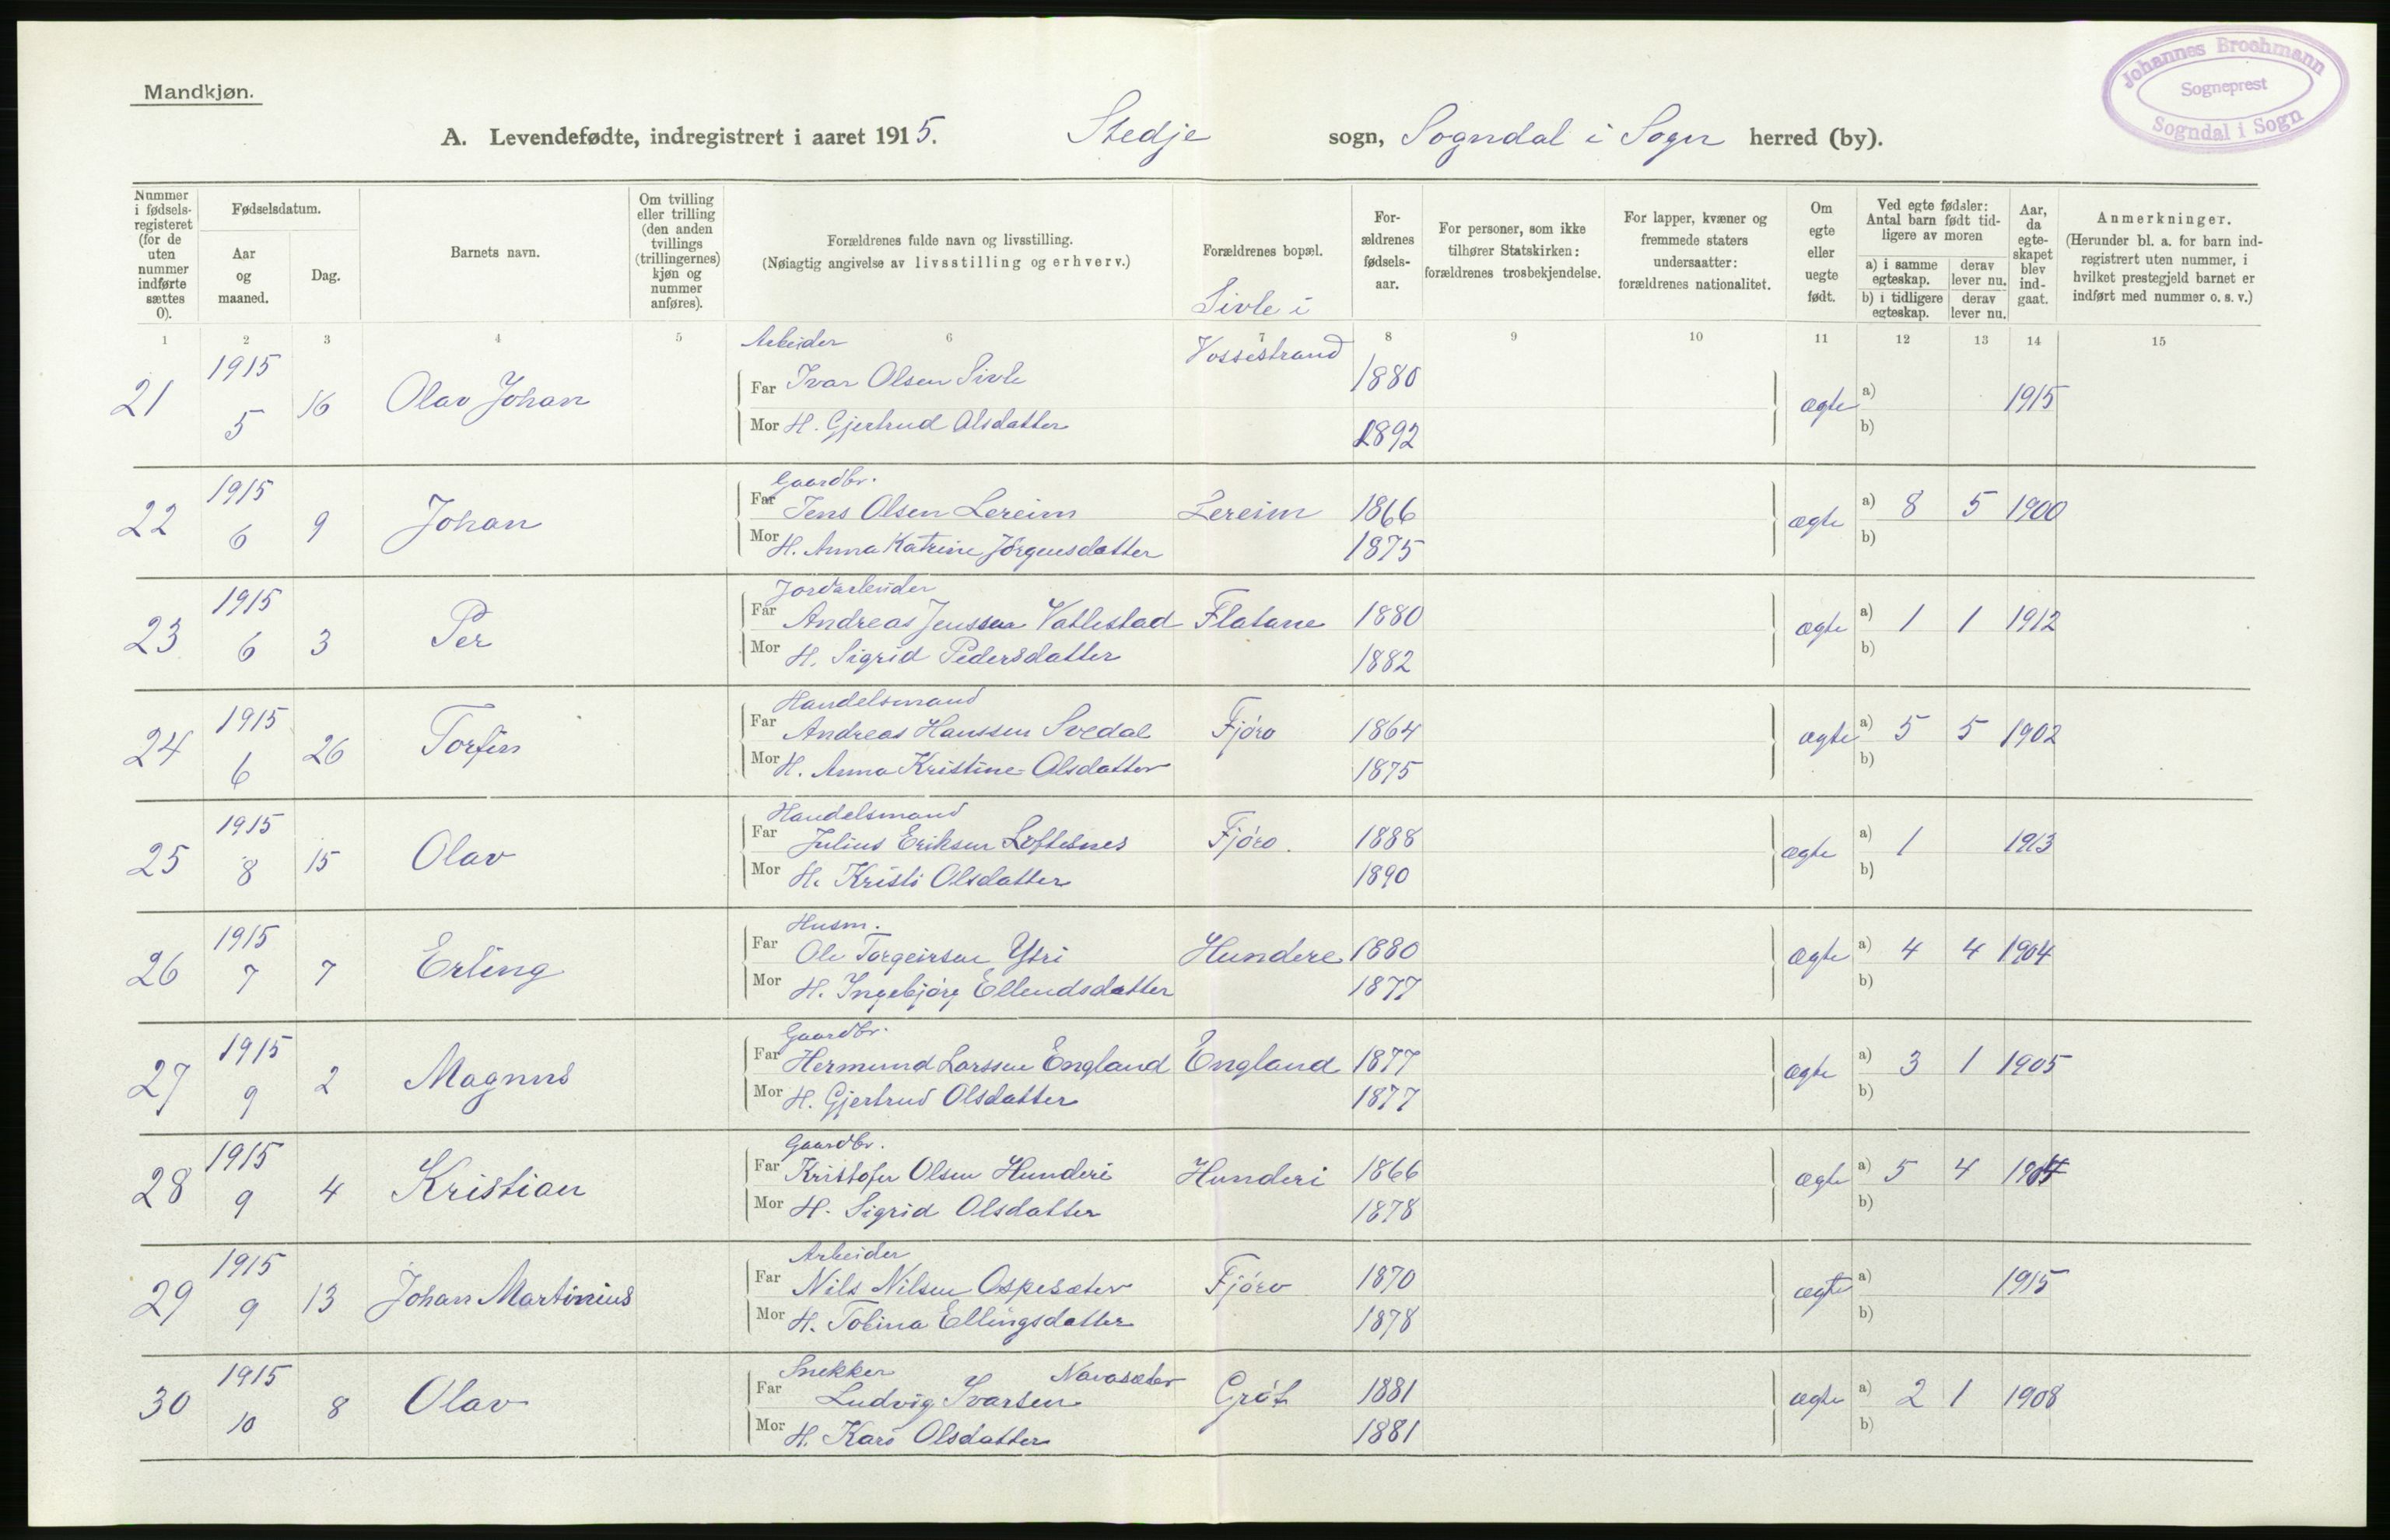 Mandkjøn.
Johannes Brochmann
Sogneprest
Sogndal i Sogn
A. Levendefødte, indregistrert i aaret 1915. Stedje sogn, Sogndal i Sogn herred (by).
Nummer i fødsels-registeret (for de uten nummer indførte sættes 0).
Fødselsdatum.
Aar og maaned.
Dag.
Barnets navn.
Om tvilling eller trilling (den anden tvillings (trillingernes) kjøn og nummer anføres).
Forældrenes fulde navn og livsstilling.
(Nøiagtig angivelse av livsstilling og erhverv.)
Forældrenes bopæl.
For-ældrenes fødsels-aar.
For personer, som ikke tilhører Statskirken: forældrenes trosbekjendelse.
For lapper, kvæner og fremmede staters undersaatter: forældrenes nationalitet.
Om egte eller uegte født.
Ved egte fødsler: Antal barn født tid-ligere av moren
a) i samme egteskap. derav lever nu.
b) i tidligere egteskap. derav lever nu.
Aar, da egte-skapet blev ind-gaat.
Anmerkninger.
(Herunder bl. a. for barn ind-registrert uten nummer, i hvilket prestegjeld barnet er indført med nummer o. s. v.)
1 2 3 4 5 6 7 8 9 10 11 12 13 14 15
Arbeider Sivle i Vossestrand
21 1915 5 16 Olav Johan Far Ivar Olsen Sivle 1880 ægte a) 1915
Mor H. Gjertrud Olsdatter 1892 b)
Gaardbr.
22 1915 6 9 Johan Far Jens Olsen Lereim Lereim 1866 ægte a) 8 5 1900
Mor H. Anna Katrine Jörgensdatter 1875 b)
Jordarbeider
23 1915 6 3 Per Far Andreas Jenssen Vatlestad Flatane 1880 ægte a) 1 1 1912
Mor H. Sigrid Pedersdatter 1882 b)
Handelsmand
24 1915 6 26 Torfin Far Andreas Hanssen Svedal Fjöro 1864 ægte a) 5 5 1902
Mor H. Anna Kristine Olsdatter 1875 b)
Handelsmand
25 1915 8 15 Olav Far Julius Eriksen Loftesnes Fjöro. 1888 ægte a) 1 1913
Mor H. Kristi Olsdatter 1890 b)
Husm.
26 1915 7 7 Erling Far Ole Torgeirsen Ytri Hundere 1880 ægte a) 4 4 1904
Mor H. Ingebjörg Ellendsdatter 1877 b)
Gaardbr.
27 1915 9 2 Magnus Far Hermund Larssen England England 1877 ægte a) 3 1 1905
Mor H. Gjertrud Olsdatter 1877 b)
Gaardbr.
28 1915 9 4 Kristian Far Kristofer Olsen Hunderi Hunderi 1866 ægte a) 5 4 1904
Mor H. Sigrid Olsdatter 1878 b)
Arbeider
29 1915 9 13 Johan Martinius Far Nils Nilsen Ospesæter Fjöro 1870 ægte a) 1915
Mor H. Tobina Ellingsdatter 1878 b)
Snekker Navasæter
30 1915 10 8 Olav Far Ludvig Ivarsen Gröt 1881 ægte a) 2 1 1908
Mor H. Kari Olsdatter 1881 b)